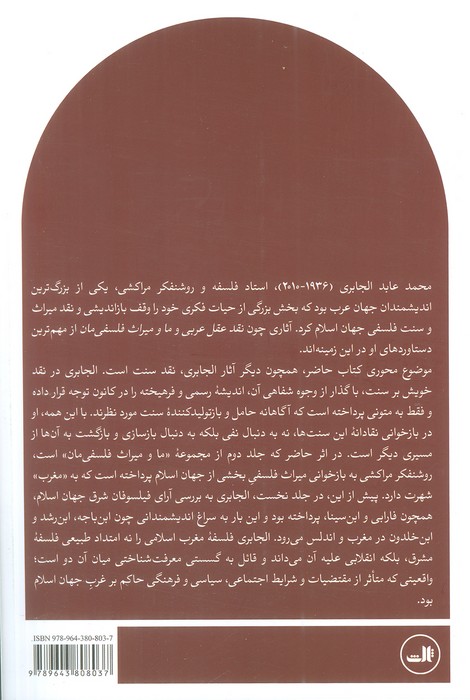 محمد عابد الجابری (۱۹۳۶-۲۰۱۰)، استاد فلسفه و روشنفکر مراکشی، یکی از بزرگ‌ترین
اندیشمندان جهان عرب بود که بخش بزرگی از حیات فکری خود را وقف بازاندیشی و نقد میراث
و سنت فلسفی جهان اسلام کرد. آثاری چون نقد عقل عربی و ما و میراث فلسفی‌مان از مهم‌ترین
دستاوردهای او در این زمینه‌اند.
موضوع محوری کتاب حاضر، همچون دیگر آثار الجابری، نقد سنت است. الجابری در نقد
خویش بر سنت، با گذار از وجوه شفاهی آن، اندیشهٔ رسمی و فرهیخته را در کانون توجه قرار داده
و فقط به متونی پرداخته است که آگاهانه حامل و بازتولیدکنندهٔ سنت مورد نظرند. با این همه، او
در بازخوانی نقادانهٔ این سنت‌ها، نه به دنبال نفی بلکه به دنبال بازسازی و بازگشت به آن‌ها از
مسیری دیگر است. در اثر حاضر که جلد دوم از مجموعهٔ «ما و میراث فلسفی‌مان» است،
روشنفکر مراکشی به بازخوانی میراث فلسفیِ بخشی از جهان اسلام پرداخته است که به «مغرب»
شهرت دارد. پیش از این، در جلد نخست، الجابری به بررسی آرای فیلسوفان شرق جهان اسلام،
همچون فارابی و ابن‌سینا، پرداخته بود و این بار به سراغ اندیشمندانی چون ابن‌باجه، ابن‌رشد و
ابن‌خلدون در مغرب و اندلس می‌رود. الجابری فلسفهٔ مغرب اسلامی را نه امتداد طبیعی فلسفهٔ
مشرق، بلکه انقلابی علیه آن می‌داند و قائل به گسستی معرفت‌شناختی میان آن دو است؛
واقعیتی که متأثر از مقتضیات و شرایط اجتماعی، سیاسی و فرهنگی حاکم بر غربِ جهان اسلام
بود.
ISBN 978-964-380-803-7
9 789643 808037
ثالث